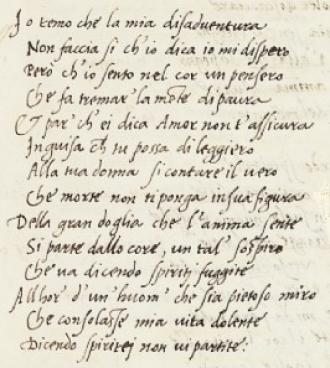 Io temo che la mia disaduentura
Non faccia si ch'io dica io mi dispero
Però ch'io sento nel cor un pensero
Che fa tremar la mẽte di paura
Et par' ch'ei dica Amor non t'assicura
In guisa ch̃ tu possa di leggiero
Alla tua donna si contare il uero
Che morte non ti ponga in sua figura
Della gran doglia che l'anima sente
Si parte dallo core, un tal' sospiro
Che ua dicendo spiriti fuggite
Allhor' d'un huom' che sia pietoso miro
Che consolasse mia uita dolente
Dicendo spiritei non ui partite: